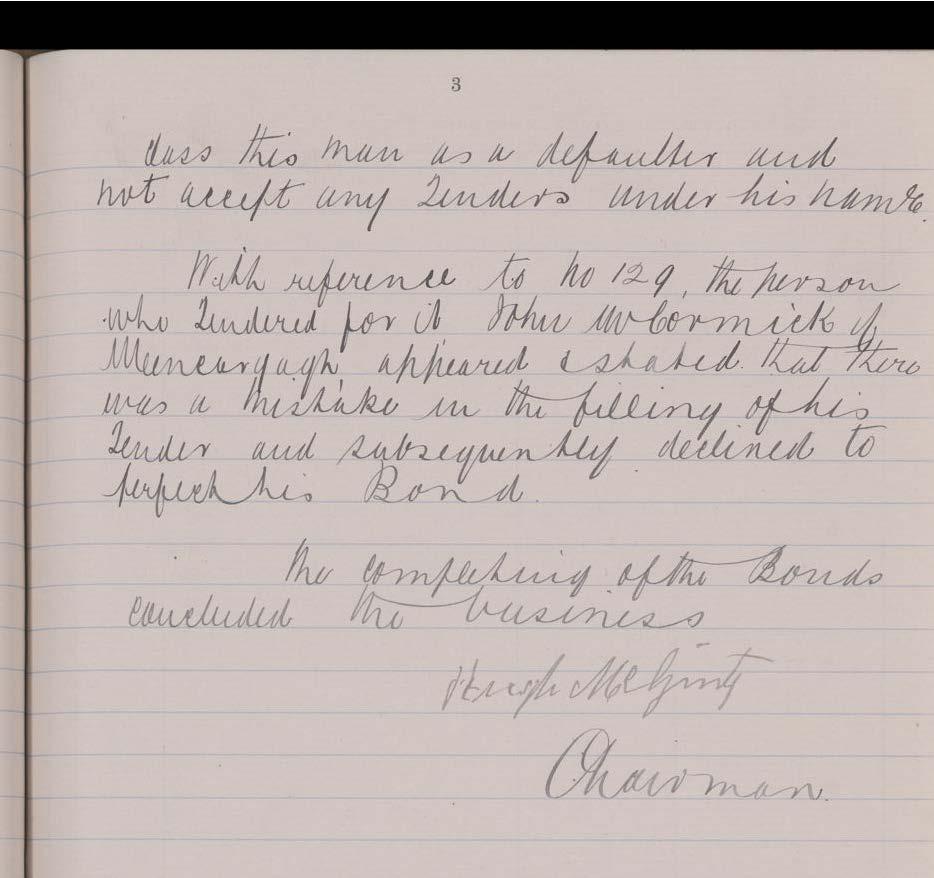 3
class this man as a defaulter and
not accept any Tenders under his name.
With reference to No 129, the person
who Tendered for it John McCormick of
Meencargagh appeared & stated that there
was a mistake in the filling of his
Tender and subsequently declined to
perfect his Bond.
The completing of the Bonds
concluded the business
Hugh McGinty
Chairman.